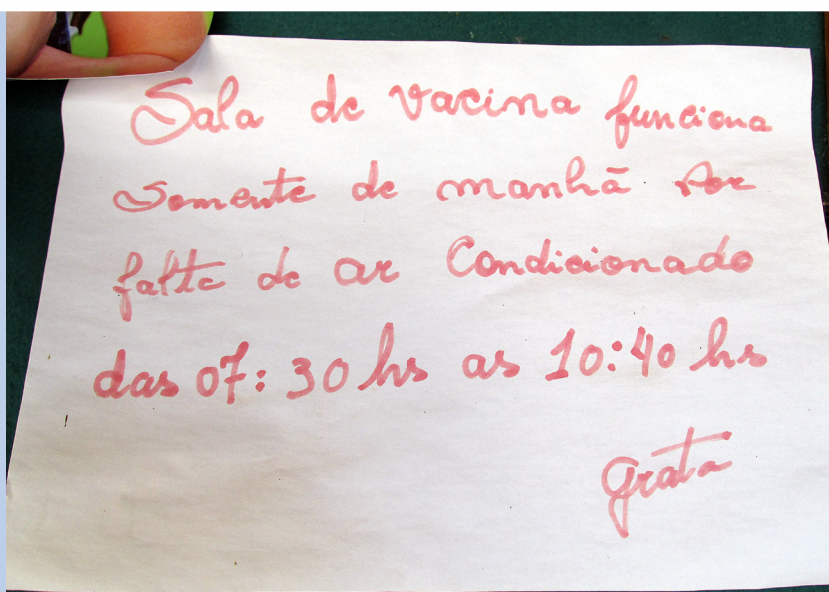 Sala de vacina funciona
somente de manhã por
falta de ar Condicionado
das 07:30 hs as 10:40 hs
grata